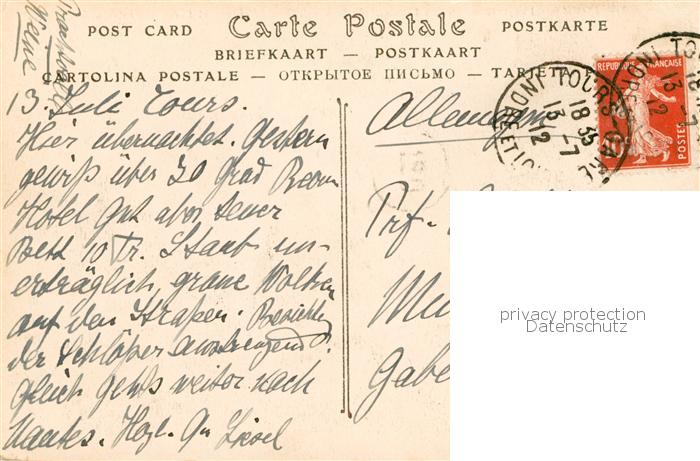 POST CARD Carte Postale POSTKARTE
BRIEFKAART — POSTKAART
CARTOLINA POSTALE — ОТКРЫТОЕ ПИСЬМО — TARJETA
13. Juli Tours.
Hier übernachtet. Gestern
gewiß über 30 Grad
Hotel gut aber teuer
Bett 10 Fr. Staub un-
erträglich, graue Wolken
auf den Straßen. Besichtig
der Schlößer anstrengend.
Gleich gehts weiter nach
Nantes. Hzgl. Gr
Allemagne
Prf.
Mü
Gabe
REPUBLIQUE FRANÇAISE
POSTES
10
TOURS GARE
18 35
13 - 7
12
INDRE ET LOIRE
privacy protection
Datenschutz